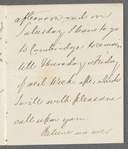 afternoon and on
Saturday I have to go
to Cambridge to remain
till Thursday or Friday
of next week, after which
I will with pleasure
call upon you.
Believe me ever